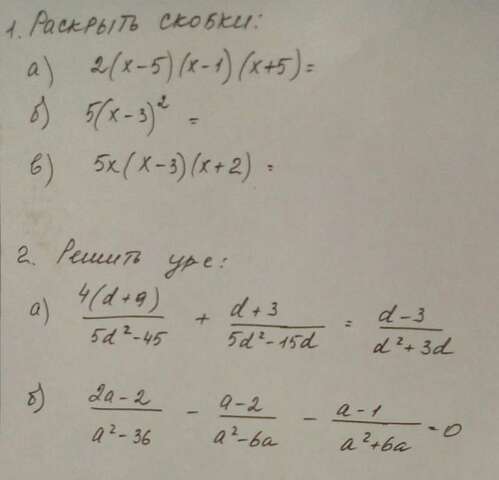 1. Раскрыть скобки:
а) 2(x-5)(x-1)(x+5)=
б) 5(x-3)² =
в) 5x(x-3)(x+2) =
2. Решить уре:
а) 4(d+9)/(5d²-45) + (d+3)/(5d²-15d) = (d-3)/(d²+3d)
б) (2a-2)/(a²-36) - (a-2)/(a²-6a) - (a-1)/(a²+6a) = 0